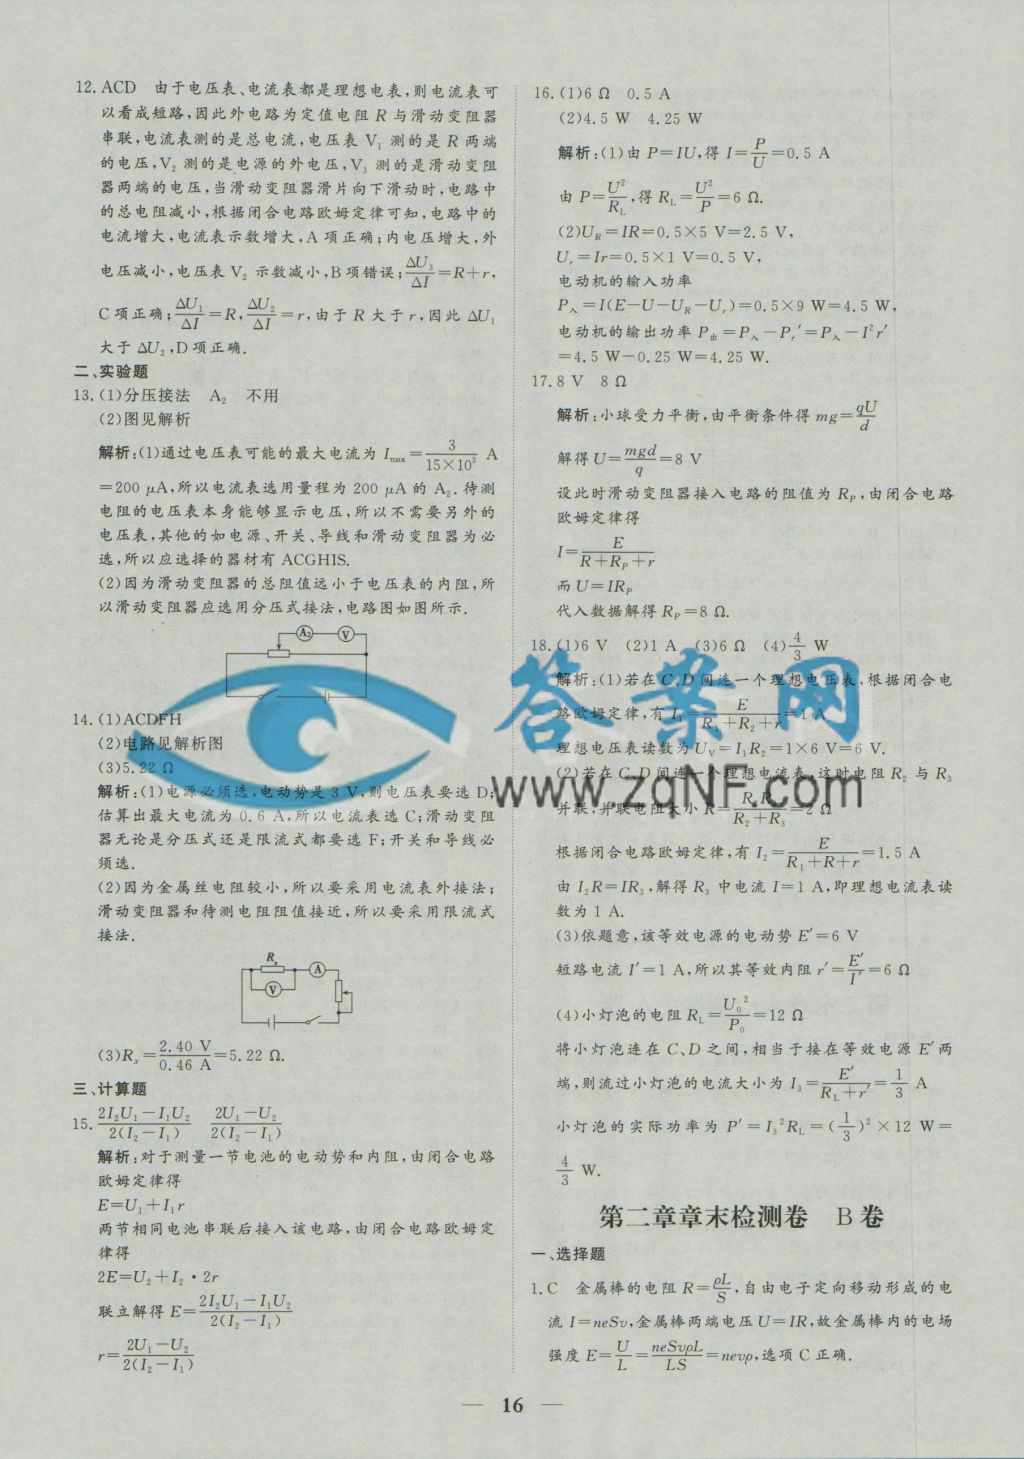 12. ACD 由于电压表、电流表都是理想电表,则电流表可
以看成短路,因此外电路为定值电阻 R 与滑动变阻器
串联,电流表测的是总电流,电压表 V₁ 测的是 R 两端
的电压,V₂ 测的是电源的外电压,V₃ 测的是滑动变阻
器两端的电压,当滑动变阻器滑片向下滑动时,电路中
的总电阻减小,根据闭合电路欧姆定律可知,电路中的
电流增大,电流表示数增大,A 项正确;内电压增大,外
电压减小,电压表 V₂ 示数减小,B 项错误;ΔU₃/ΔI=R+r,
C 项正确;ΔU₁/ΔI=R,ΔU₂/ΔI=r,由于 R 大于 r,因此 ΔU₁
大于 ΔU₂,D 项正确.
二、实验题
13. (1)分压接法 A₂ 不用
(2)图见解析
解析:(1)通过电压表可能的最大电流为 Iₘₐₓ=3/(15×10³) A
=200 μA,所以电流表选用量程为 200 μA 的 A₂.待测
电阻的电压表本身能够显示电压,所以不需要另外的
电压表,其他的如电源、开关、导线和滑动变阻器为必
选,所以应选择的器材有 ACGHIS.
(2)因为滑动变阻器的总阻值远小于电压表的内阻,所
以滑动变阻器应选用分压式接法,电路图如图所示.
A₂ V
14. (1)ACDFH
(2)电路见解析图
(3)5.22 Ω
解析:(1)电源必须选,电动势是 3 V,则电压表要选 D;
估算出最大电流为 0.6 A,所以电流表选 C;滑动变阻
器无论是分压式还是限流式都要选 F;开关和导线必
须选.
(2)因为金属丝电阻较小,所以要采用电流表外接法;
滑动变阻器和待测电阻阻值接近,所以要采用限流式
接法.
Rₓ
A
V
(3)Rₓ=2.40 V/0.46 A=5.22 Ω.
三、计算题
15. (2I₂U₁−I₁U₂)/2(I₂−I₁) (2U₁−U₂)/2(I₂−I₁)
解析:对于测量一节电池的电动势和内阻,由闭合电路
欧姆定律得
E=U₁+I₁r
两节相同电池串联后接入该电路,由闭合电路欧姆定
律得
2E=U₂+I₂·2r
联立解得 E=(2I₂U₁−I₁U₂)/2(I₂−I₁)
r=(2U₁−U₂)/2(I₂−I₁)
16. (1)6 Ω 0.5 A
(2)4.5 W 4.25 W
解析:(1)由 P=IU,得 I=P/U=0.5 A
由 P=U²/R_L,得 R_L=U²/P=6 Ω.
(2)U_R=IR=0.5×5 V=2.5 V,
Uᵣ=Ir=0.5×1 V=0.5 V,
电动机的输入功率
P入=I(E−U−U_R−Uᵣ)=0.5×9 W=4.5 W,
电动机的输出功率 P出=P入−Pᵣ′=P入−I²r′
=4.5 W−0.25 W=4.25 W.
17. 8 V 8 Ω
解析:小球受力平衡,由平衡条件得 mg=qU/d
解得 U=mgd/q=8 V
设此时滑动变阻器接入电路的阻值为 R_P,由闭合电路
欧姆定律得
I=E/(R+R_P+r)
而 U=IR_P
代入数据解得 R_P=8 Ω.
18. (1)6 V (2)1 A (3)6 Ω (4)4/3 W
解析:(1)若在 C、D 间连一个理想电压表,根据闭合电
路欧姆定律,有 I₁=E/(R₁+R₂+r)=1 A
理想电压表读数为 U_V=I₁R₂=1×6 V=6 V.
(2)若在 C、D 间连一个理想电流表,这时电阻 R₂ 与 R₃
并联,并联电阻大小 R=R₂R₃/(R₂+R₃)=2 Ω
根据闭合电路欧姆定律,有 I₂=E/(R₁+R+r)=1.5 A
由 I₂R=IR₃,解得 R₃ 中电流 I=1 A,即理想电流表读
数为 1 A.
(3)依题意,该等效电源的电动势 E′=6 V
短路电流 I′=1 A,所以其等效内阻 r′=E′/I′=6 Ω
(4)小灯泡的电阻 R_L=U₀²/P₀=12 Ω
将小灯泡连在 C、D 之间,相当于接在等效电源 E′两
端,则流过小灯泡的电流大小为 I₃=E′/(R_L+r′)=1/3 A
小灯泡的实际功率为 P′=I₃²R_L=(1/3)²×12 W=
4/3 W.
第二章章末检测卷 B 卷
一、选择题
1. C 金属棒的电阻 R=ρL/S,自由电子定向移动形成的电
流 I=neSv,金属棒两端电压 U=IR,故金属棒内的电场
强度 E=U/L=neSvρL/LS=nevρ,选项 C 正确.
— 16 —
答案网
www.zqNF.com